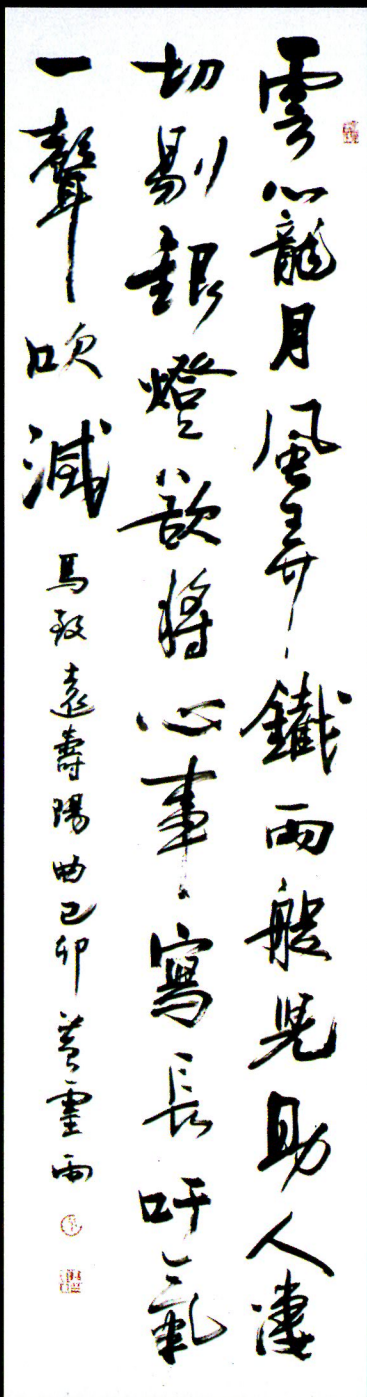 雲籠月風弄鐵兩般兒助人凄
切剔銀燈欲將心事寫長吁氣
一聲吹滅
馬致遠壽陽曲己卯 黃靈雨